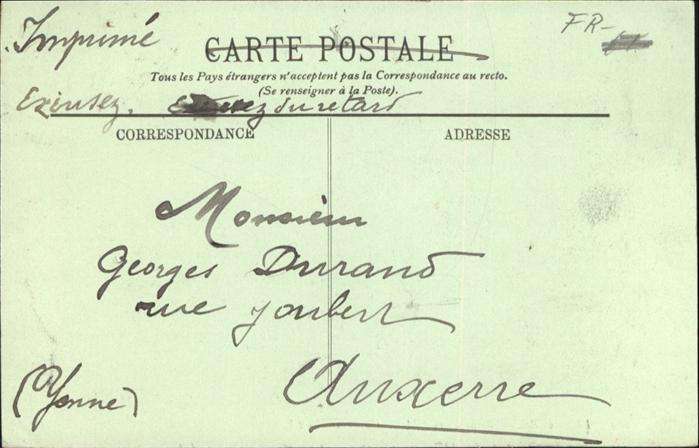 Imprimé
FR-
CARTE POSTALE
Tous les Pays étrangers n'acceptent pas la Correspondance au recto.
(Se renseigner à la Poste).
ExCusez. du retard
CORRESPONDANCE
ADRESSE
Monsieur
Georges Durand
rue Joubert
Auxerre
(Yonne)